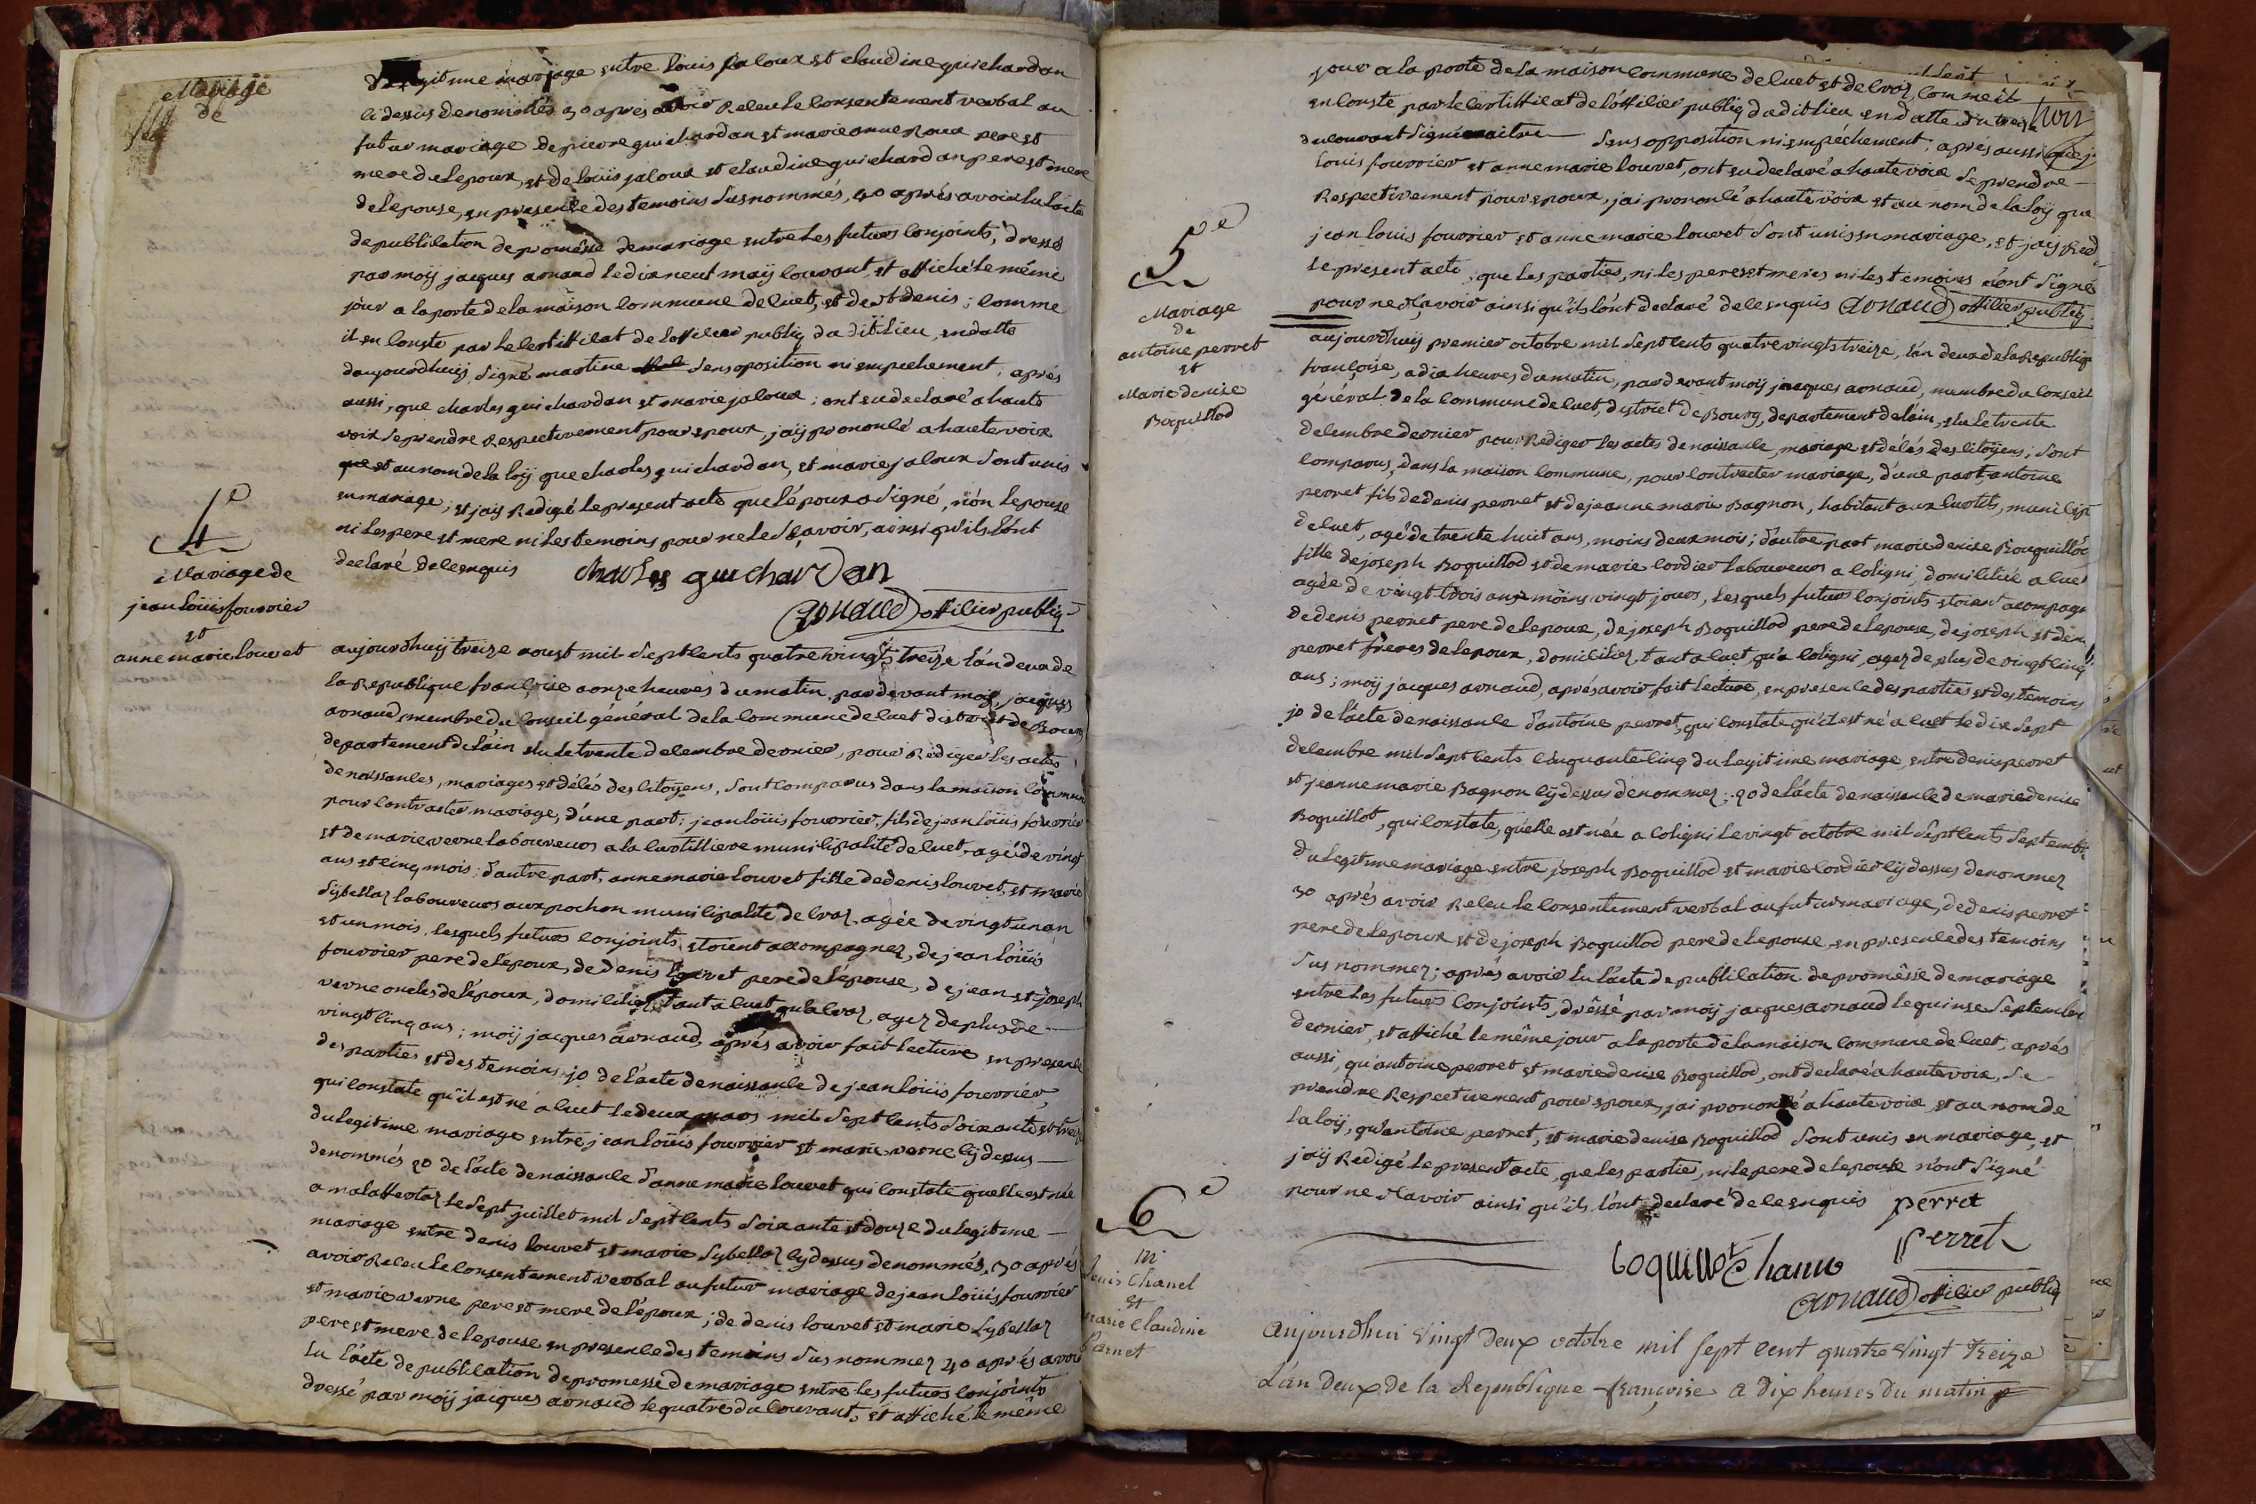 Mariage
de
legitime mariage entre louis jaloux et claudine guichardan
ci dessus denommés 3o apres avoir Receu le consentement verbal au
futur mariage de pierre guichardan et marie anne Roux pere et
mere de lepoux, et de loüis jaloux et claudine guichardan pere et mere
de lepouse, en presence des temoins susnommés, 4o aprés avoir lu lacte
de publication de promêsse de mariage entre les futurs conjoints, dressé
par moÿ jacques arnaud le dix neuf maÿ courant, et affiché le même
jour a la porte de la maison commune de cuet, et de st denis; comme
il en conste par le certifficat de lofficier publiq dudit lieu, en datte
daujourdhuij signé martine sens oposition ni empechement, aprés
aussi, que charles guichardan et marie jaloux; ont eu declaré a haute
voix se prendre Respectivement pour epoux, jaÿ prononcé a haute voix
que et au nom de la loÿ que charles guichardan, et marie jaloux sont unis
en mariage; et jaÿ Redigé le present acte que l'époux a signé, nón lepouse
ni les pere et mere ni les temoins pour ne le sçavoir, ainsi quils lónt
declaré de ce enquis charles guichardan
arnaud officier publiq
4e
Mariage de
jean loüis fourrier
et
anne marie louvet
aujourdhuÿ treize aoust mil sept cents quatre vingts treize lán deux de
la Republique françoise a onze heures du matin, par devant moÿ, jacques
arnaud membre du conseil général de la commune de cuet district de Bourg
departement de láin elu le trente decembre dernier, pour Rediger les actes
de naissances, mariages et décés des citoÿens, sont comparus dans la maison commune
pour contracter mariage, d'une part; jean loüis fourrier, fils de jean loüis fourrier
et de marie verne laboureurs a la curtilliere municipalité de cuet, agé de vingt
ans et cinq mois; d'autre part, anne marie louvet fille de denis louvet, et marie
sybellaz laboureurs aux pochon municipalite de craz, agée de vingt un an
et un mois, lesquels futurs conjoints étoient accompagnez, de jean loüis
fourrier pere de lépoux, de denis louvet pere de lépouse, de jean et joseph
verne oncles de lépoux, domiciliez, tant a cuet qu'a craz, agez de plus de
vingt cinq ans; moÿ jacques arnaud, aprés avoir fait lecture en presence
des parties et des temoins 1o de lácte de naissance de jean loüis fourrier,
qui constate qu'il est né a cuet le deux mars mil sept cents soixante et treize
du legitime mariage entre jean loüis fourrier et marie verne cÿ dessus
denommés 2o de lácte de naissance d'anne marie louvet qui constate quelle est née
a malaffretaz le sept juillet mil sept cents soixante et douze du legitime
mariage entre denis louvet et marie sybellaz cÿ dessus denommés, 3o aprés
avoir Receu le consentement verbal au futur mariage de jean loüis fourrier
et marie verne pere et mere de lépoux; de denis louvet et marie sybellaz
pere et mere de lepouse en presence des temoins sus nommez 4o aprés avoir
lu lácte de publication de promesse de mariage entre les futurs conjoints
dressé par moÿ jacques arnaud le quatre du courant, et affiché le même
jour a la porte de la maison commune de cuet et de craz, comme il
en conste par le certifficat de lófficier publiq dudit lieu en datte du treize
du courant signé maitre sens opposition ni empéchement; apres aussi que j.
louis fourrier et anne marie louvet, ont eu declaré a haute voix se prendre
Respectivement pour epoux, jai prononcé a haute voix et au nom de la loÿ que
jean louis fourrier et anne marie louvet sont unis en mariage, et jaij Red
le present acte, que les parties, ni les peres et meres ni les temoins nont signé
pour ne sçavoir ainsi qu'ils lónt declaré de ce enquis arnaud officier publiq
5e
Mariage
de
antoine perret
et
Marie denise
Boquillod
aujourdhuÿ premier octobre mil sept cents quatre vingts treize, lán deux de la Republiq
françoise, a dix heures du matin, par devant moÿ jacques arnaud, membre du conseil
général de la commune de cuet, district de Bourg, departement de láin, elu le trente
decembre dernier pour Rediger les actes de naissance, mariage et décés des citoÿens; sont
comparus, dans la maison commune, pour contracter mariage, d'une part antoine
perret fils de denis perret et de jeanne marie Bagnon, habitant aux curtils, municip
de cuet, agé de trente huit ans, moins deux mois; d'autre part marie denise Bouquillód
fille de joseph Boquillod et de marie cordier laboureurs a coligni, domiciliée a cuet
agée de vingt trois ans moins vingt jours, lesquels futurs conjoints etoient acompagn
de denis perret pere de lepoux, de joseph Boquillod pere de lepouse, de joseph et den
perret fréres de lepoux, domiciliez, tant a cuet, qu'a coligni, agez de plus de vingt cinq
ans; moÿ jacques arnaud, aprés avoir fait lecture, en presence des parties et des temoins
1o de lácte de naissance d'antoine perret, qui constate qu'il est né a cuet le dix sept
decembre mil sept cents cinquante cinq du legitime mariage, entre denis perret
et jeanne marie Bagnon cÿ dessus denommez; 2o de lácte de naissance de marie denise
Boquillot, qui constate, qu'elle est née a coligni le vingt octobre mil sept cents sept
du legitime mariage entre joseph Boquillod et marie cordier cÿ dessus denommez
3o aprés avoir Receu le consentement verbal au futur mariage, de denis perret
pere de lepoux et de joseph Boquillod pere de lepouse en presence des temoins
sus nommez; aprés avoir lu lácte de publication de promêsse de mariage
entre les futurs conjoints, drêssé par moÿ jacques arnaud le quinse septembre
dernier, et affiché le même jour a la porte de la maison commune de cuet; aprés
aussi, qu'antoine perret et marie denise Boquillod, ont declaré a haute voix, se
prendre Respectivement pour epoux, jai prononcé a haute voix et au nom de
la loÿ, qu'antoine perret, et marie denise Boquillod sont unis en mariage, et
jaÿ Redigé le present acte, que les parties, ni le pere de lepouse n'ont signé
pour ne sçavoir ainsi qu'ils lónt declaré de ce enquis perret
perret
arnaud officier publiq
6e
m.
Denis Chanel
et
marie Claudine
Carnet
Aujourdhui vingt deux octobre mil sept cent quatre vingt treize
L'an deux de la Republique françoise a dix heures du matin p